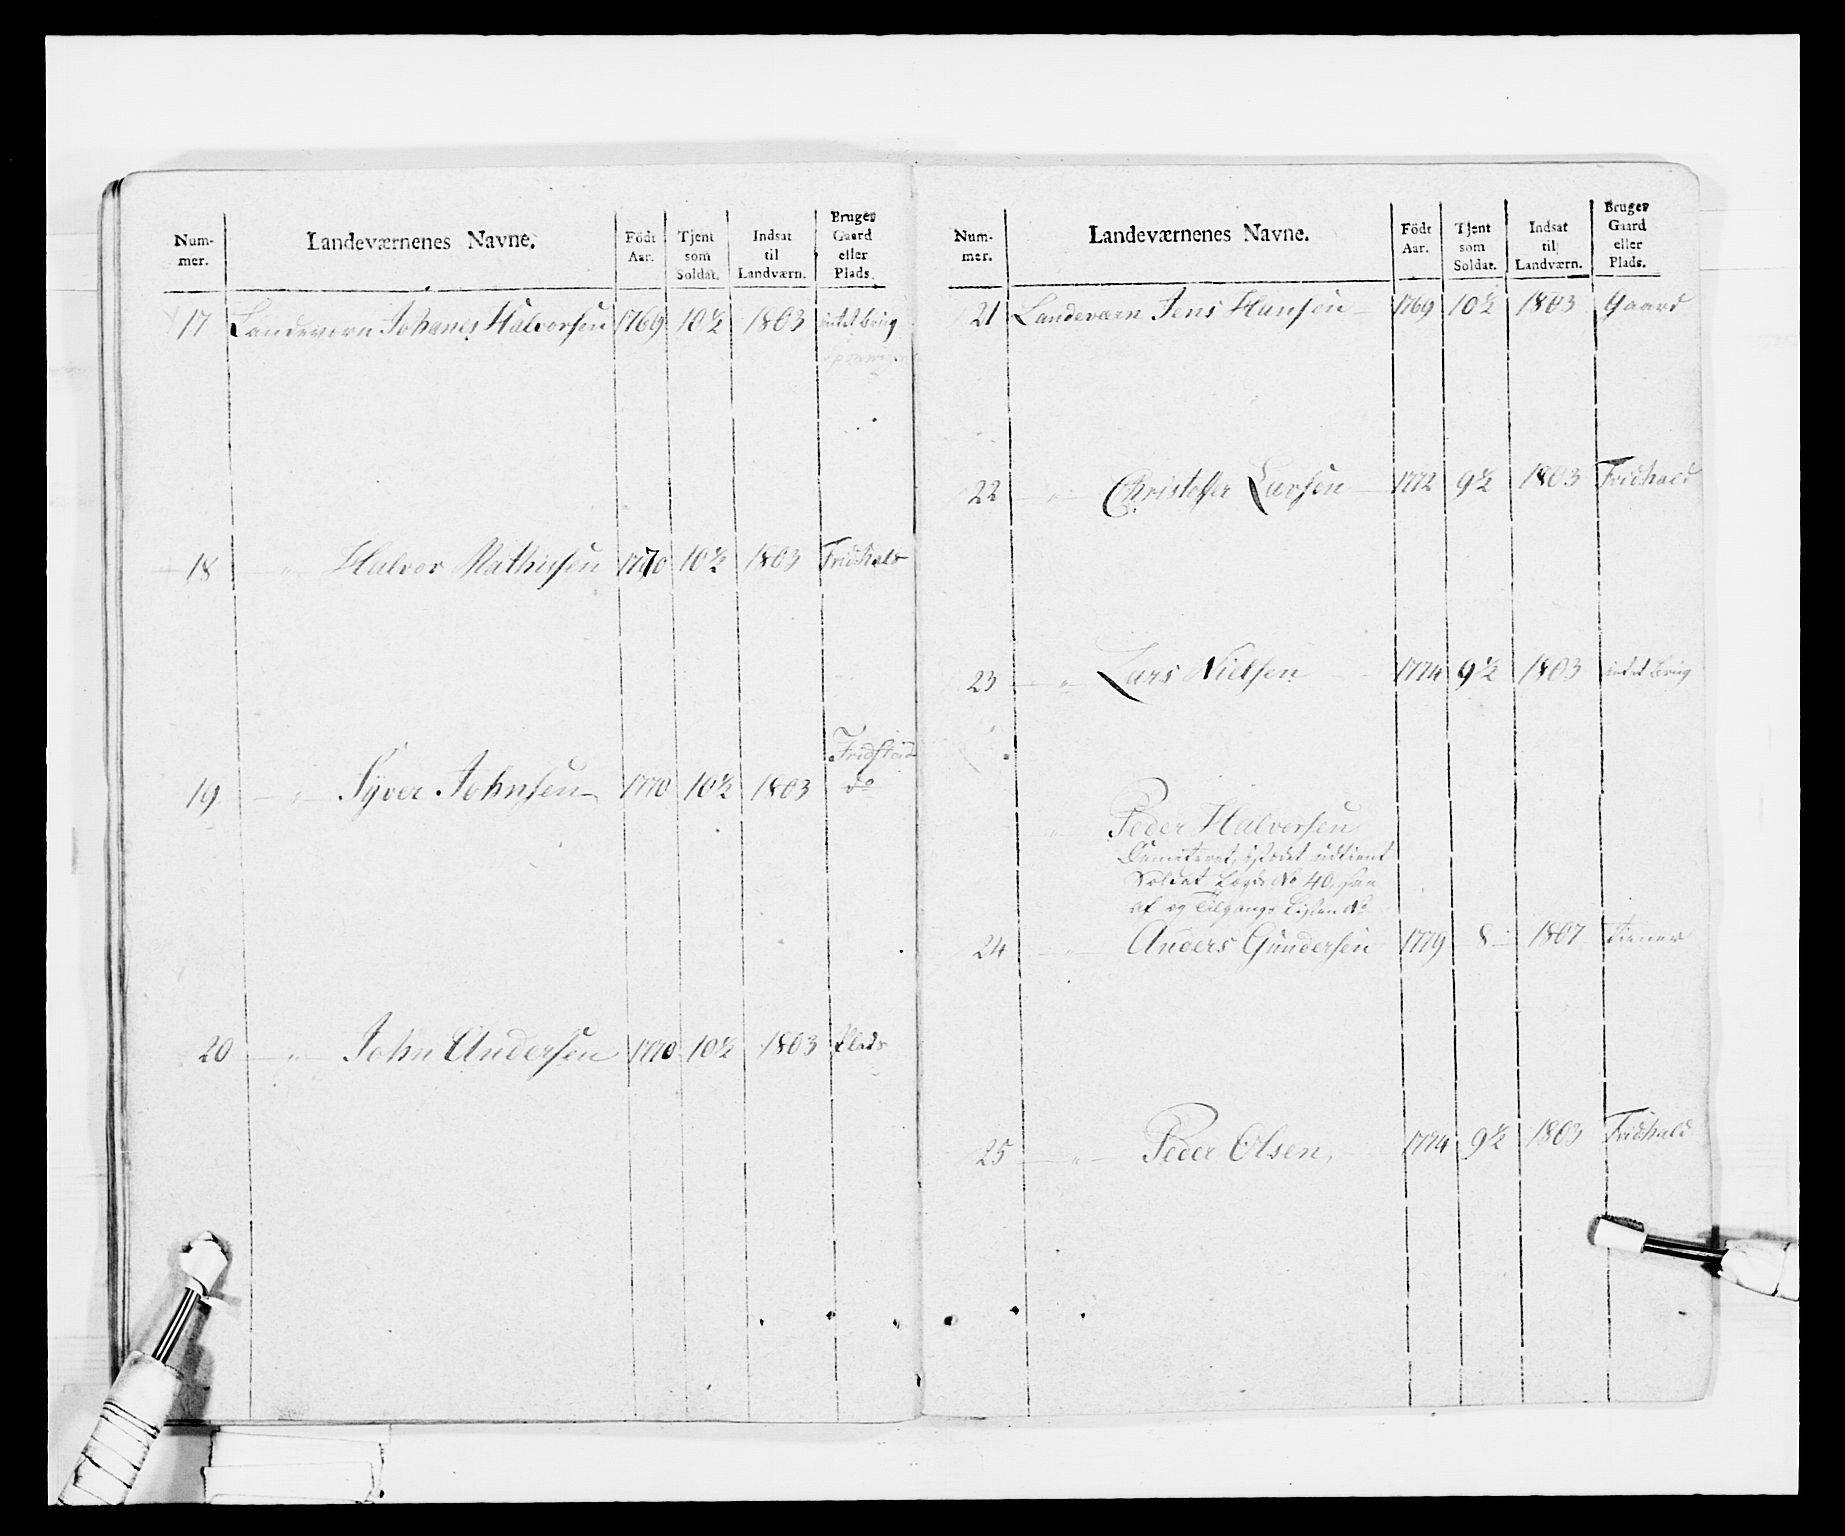 Num-
mer.
Landeværnenes Navne.
Födt
Aar.
Tjent
som
Soldat.
Indsat
til
Landværn.
Bruger
Gaard
eller
Plads.
17 Landeværn Johanes Halvorsen 1769 10½ 1803 intet brug
18 — „ — Halvor Mathisen 1770 10½ 1803 Fridhald
19 — „ — Syver Johnsen 1770 10½ 1803 Fridstad
do
20 — „ — John Andersen 1770 10½ 1803 Plads
Num-
mer.
Landeværnenes Navne.
Födt
Aar.
Tjent
som
Soldat.
Indsat
til
Landværn.
Bruger
Gaard
eller
Plads.
21 Landeværn Jens Hansen 1769 10½ 1803 Gaard
22 — „ — Christoffer Larsen 1772 9½ 1803 Fridhald
23 — „ — Lars Nielsen 1774 9½ 1803 intet brug
„ Peder Halvorsen
istædet udtient
Soldat Lægd No 40,
af og Tilgangs Listen No
24 — „ — Anders Gundersen 1779 8 1807 tiener
25 — „ — Peder Olsen, 1774 9½ 1803 Fridhald